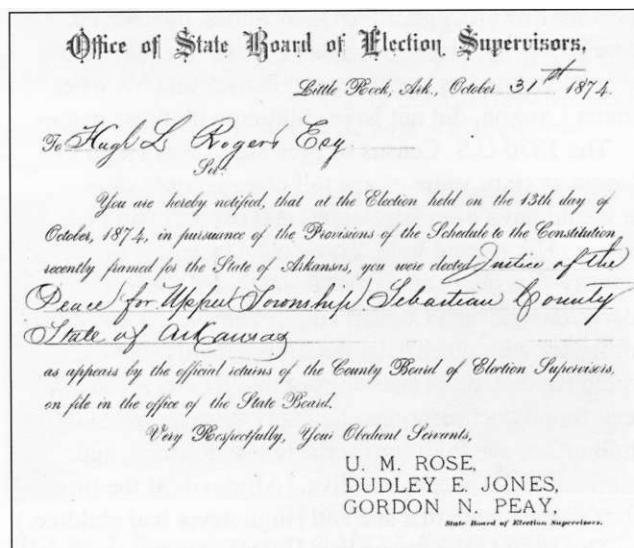 Office of State Board of Election Supervisors,
Little Rock, Ark., October 31st 1874.
To Hugh L Rogers Esq
Sir:
You are hereby notified, that at the Election held on the 13th day of
October, 1874, in pursuance of the Provisions of the Schedule to the Constitution
recently framed for the State of Arkansas, you were elected Justice of the
Peace for Upper Township Sebastian County
State of Arkansas
as appears by the official returns of the County Board of Election Supervisors,
on file in the office of the State Board.
Very Respectfully, Your Obedient Servants,
U. M. ROSE,
DUDLEY E. JONES,
GORDON N. PEAY,
State Board of Election Supervisors.